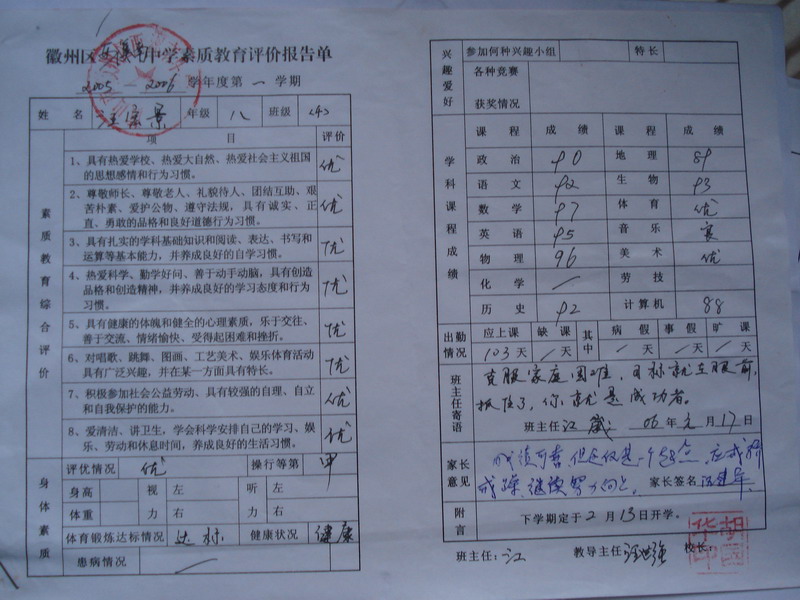 徽州区 中学素质教育评价报告单
2005 — 2006 学年度第 一 学期
姓 名 年级 八 班级
项 目 评价
素质教育综合评价
1、具有热爱学校、热爱大自然、热爱社会主义祖国的思想感情和行为习惯。 优
2、尊敬师长、尊敬老人、礼貌待人、团结互助、艰苦朴素、爱护公物、遵守法规，具有诚实、正直、勇敢的品格和良好道德行为习惯。 优
3、具有扎实的学科基础知识和阅读、表达、书写和运算等基本能力，并养成良好的自学习惯。 优
4、热爱科学、勤学好问、善于动手动脑，具有创造品格和创造精神，并养成良好的学习态度和行为习惯。 优
5、具有健康的体魄和健全的心理素质，乐于交往、善于交流、情绪愉快、受得起困难和挫折。 优
6、对唱歌、跳舞、图画、工艺美术、娱乐体育活动具有广泛兴趣，并在某一方面具有特长。 优
7、积极参加社会公益劳动、具有较强的自理、自立和自我保护的能力。 优
8、爱清洁、讲卫生，学会科学安排自己的学习、娱乐、劳动和休息时间，养成良好的生活习惯。 优
评优情况 优 操行等第 甲
身体素质
身高 视 左 听 左
体重 力 右 力 右
体育锻炼达标情况 达标 健康状况 健康
患病情况
兴趣爱好
参加何种兴趣小组 特长
各种竞赛
获奖情况
学科课程成绩
课程 成绩 课程 成绩
政治 90 地理 89
语文 92 生物 93
数学 97 体育 优
英语 95 音乐
物理 96 美术 优
化学 劳技
历史 92 计算机 88
出勤情况
应上课 缺课 其中 病假 事假 旷课
103天 天 天 天 天
班主任寄语
克服家庭困难，目标就在眼前，
抓住了，你就是成功者。
班主任 江 06 年 元 月 17 日
家长意见
成绩可喜，但这仅是一个起点，应戒骄
戒躁，继续努力向上。 家长签名
附言 下学期定于 2 月 13 日开学。
班主任：江 教导主任 校长：